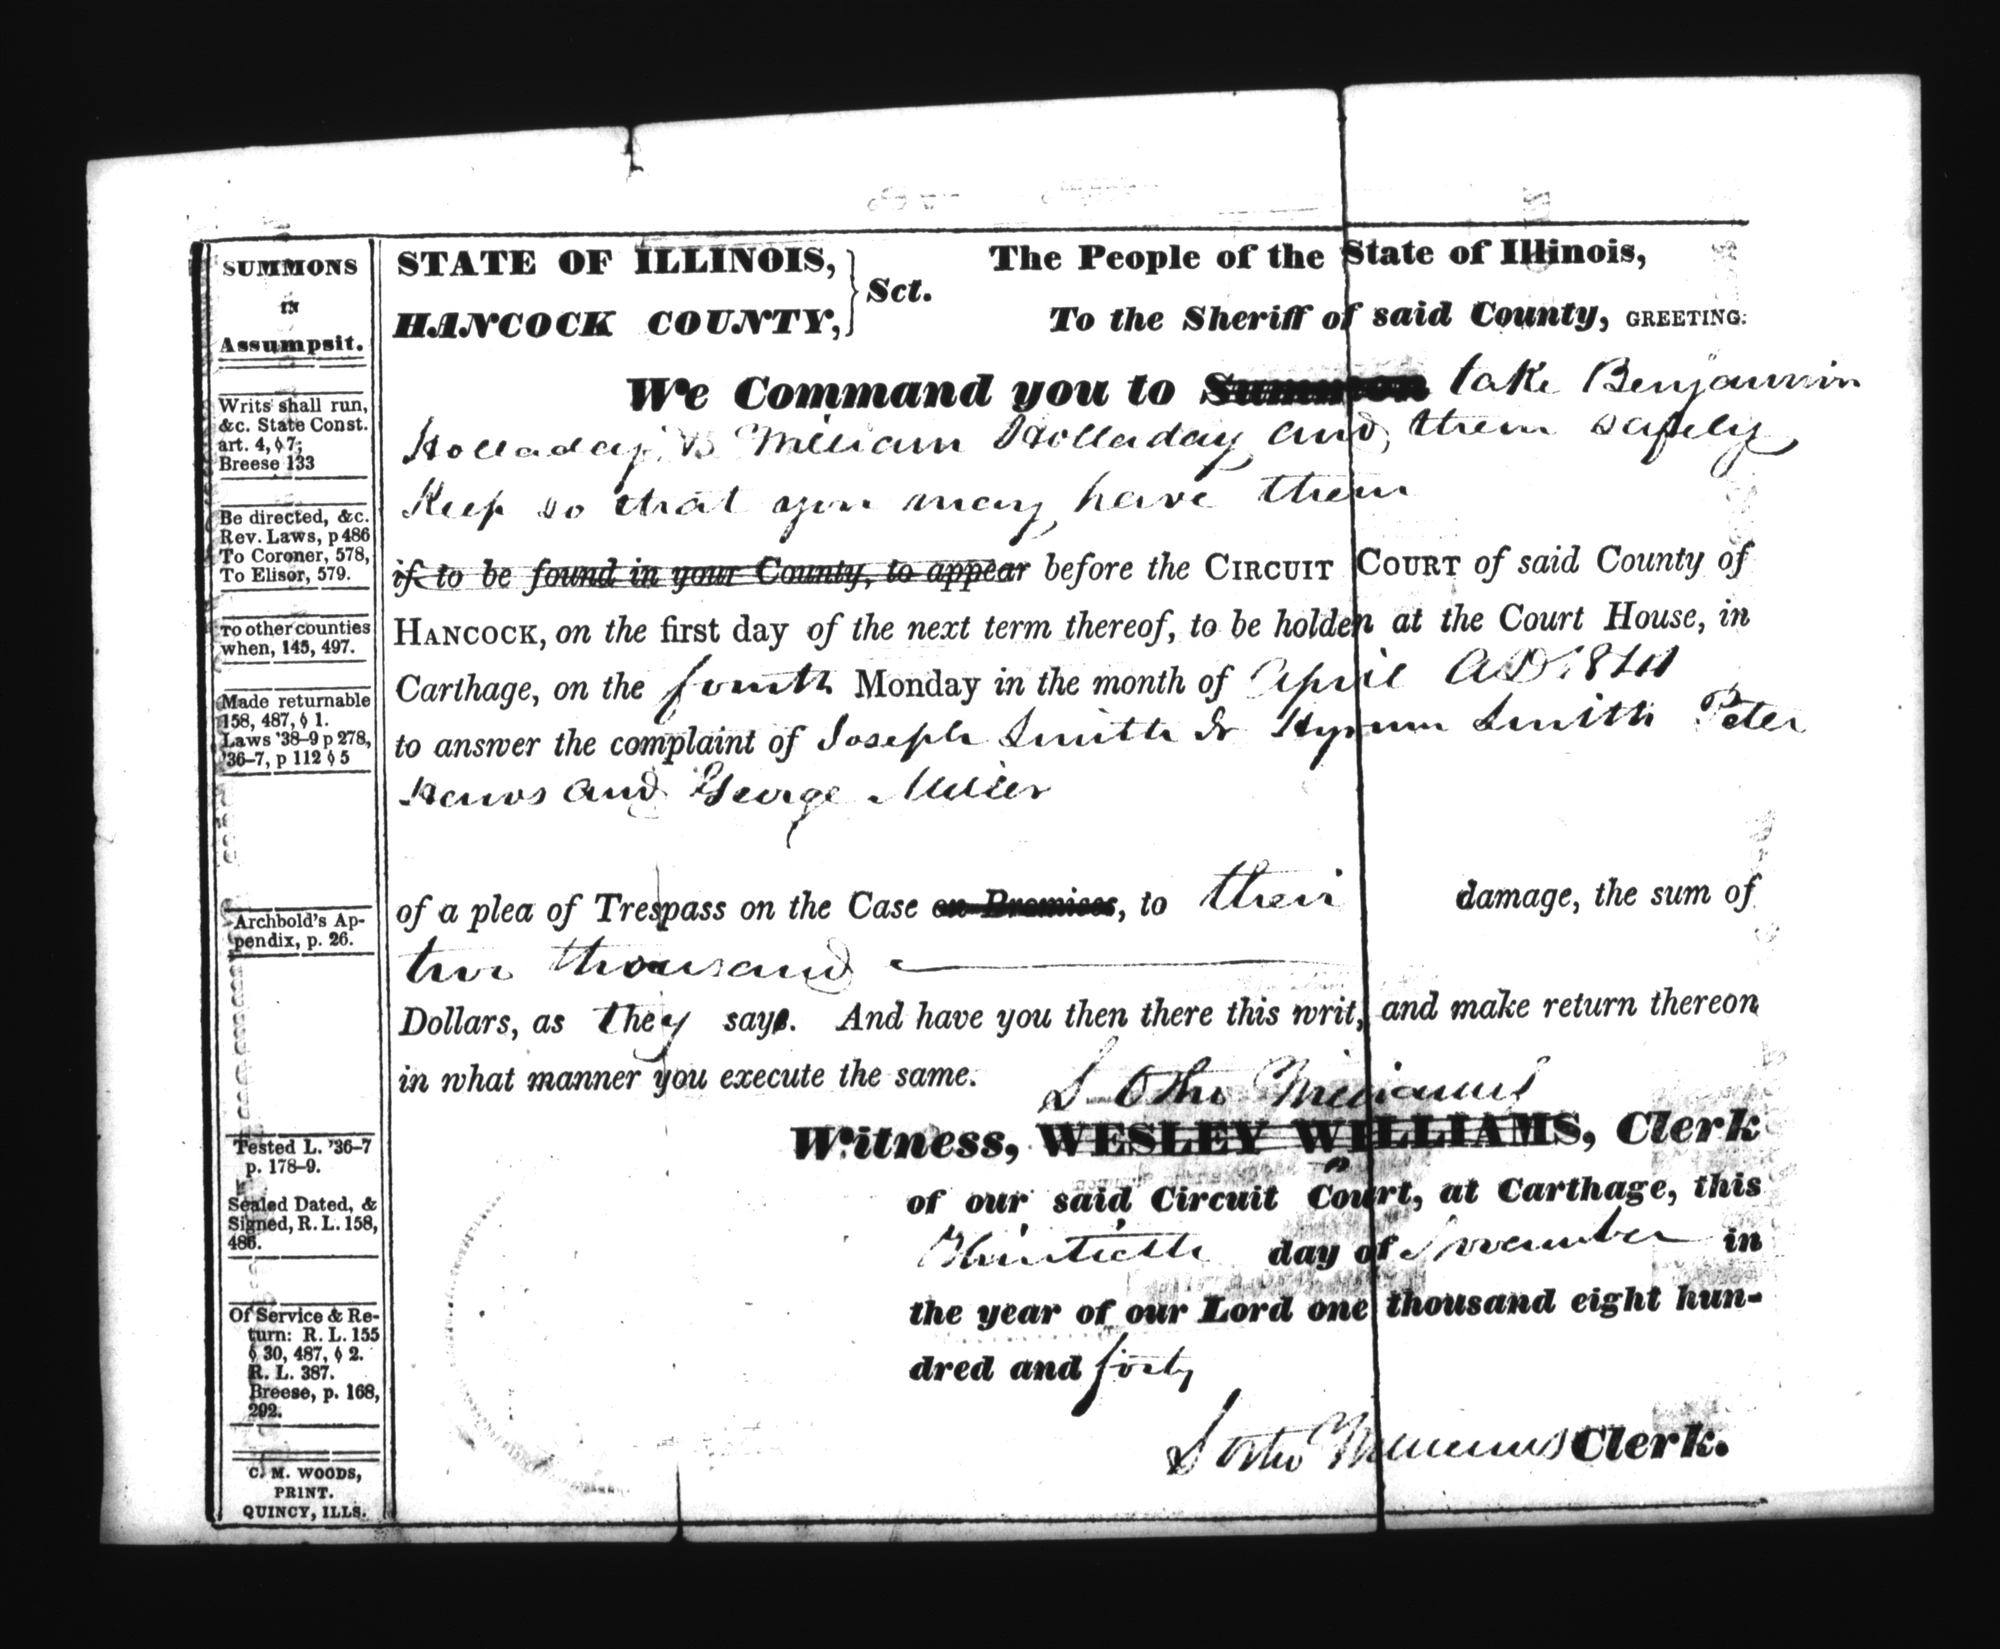 SUMMONS
IN
Assumpsit.
Writs shall run,
&c. State Const.
art. 4, § 7;
Breese 133
Be directed, &c.
Rev. Laws, p 486
To Coroner, 578,
To Elisor, 579.
To other counties
when, 145, 497.
Made returnable
158, 487, § 1.
Laws '38–9 p 278,
'36–7, p 112 § 5
Archbold's Ap-
pendix, p. 26.
Tested L. '36–7
p. 178–9.
Sealed Dated, &
Signed, R. L. 158,
486.
Of Service & Re-
turn: R. L. 155
§ 30, 487, § 2.
R. L. 387.
Breese, p. 168,
292.
C. M. WOODS,
PRINT.
QUINCY, ILLS.
STATE OF ILLINOIS,
HANCOCK COUNTY,
Sct.
The People of the State of Illinois,
To the Sheriff of said County, GREETING:
We Command you to Summon take Benjamin
Holladay William Holladay and them safely
Keep so that you may have them
if to be found in your County, to appear before the CIRCUIT COURT of said County of
HANCOCK, on the first day of the next term thereof, to be holden at the Court House, in
Carthage, on the fourth Monday in the month of April AD 1841
to answer the complaint of Joseph Smith Jr Hyrum Smith Peter
Haws and George Miller
of a plea of Trespass on the Case on Promises, to their damage, the sum of
two thousand
Dollars, as they says. And have you then there this writ, and make return thereon
in what manner you execute the same.
S Otho Williams
Witness, WESLEY WILLIAMS, Clerk
of our said Circuit Court, at Carthage, this
Thirtieth day of November in
the year of our Lord one thousand eight hun-
dred and forty
S Otho Williams Clerk.